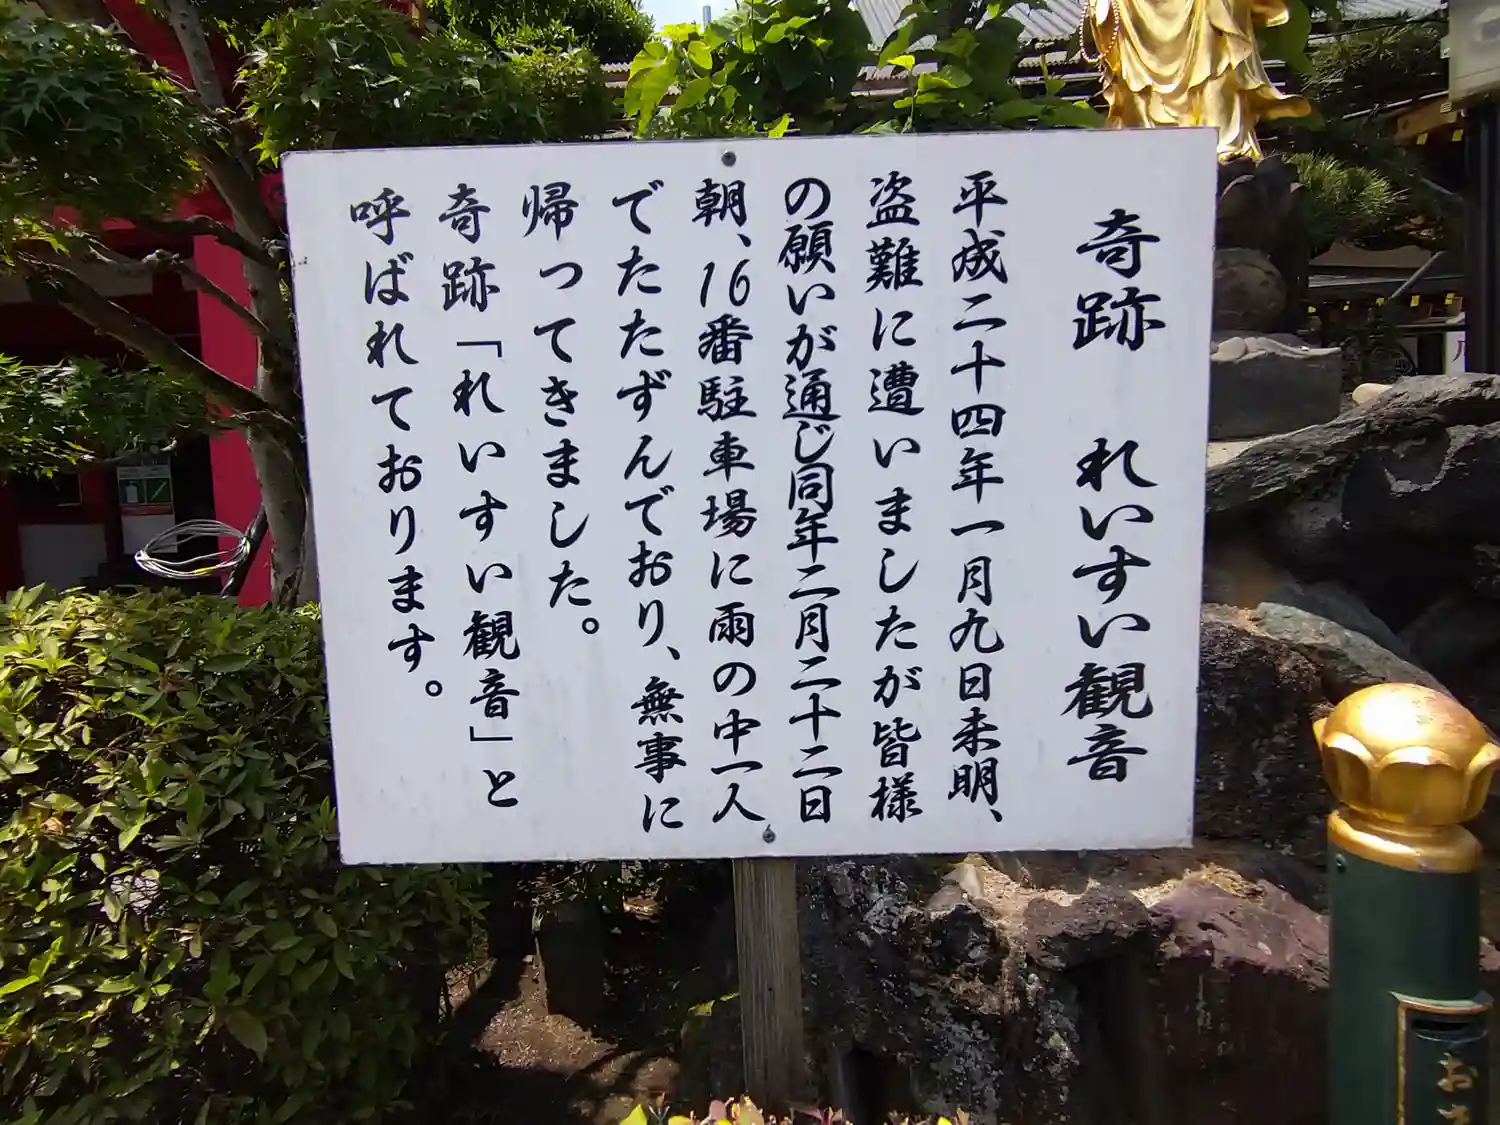 奇跡　れいすい観音
平成二十四年一月九日未明、
盗難に遭いましたが皆様
の願いが通じ同年二月二十二日
朝、16番駐車場に雨の中一人
でたたずんでおり、無事に
帰ってきました。
奇跡「れいすい観音」と
呼ばれております。